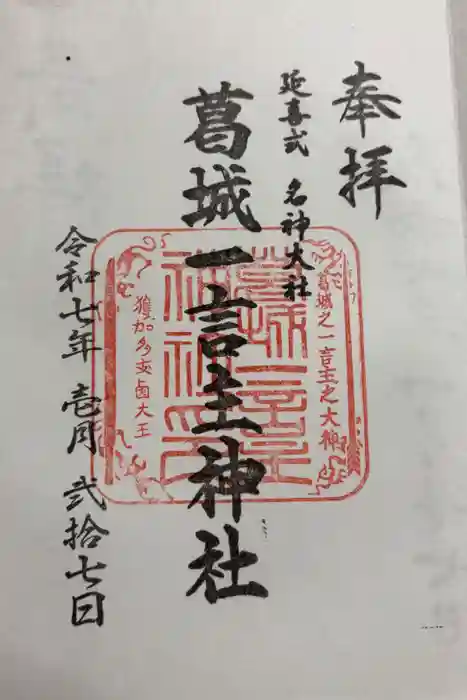 奉拝
延喜式 名神大社
葛城一言主神社
令和七年 壱月 弐拾七日
葛城之一言主之大神
獲加多支鹵大王